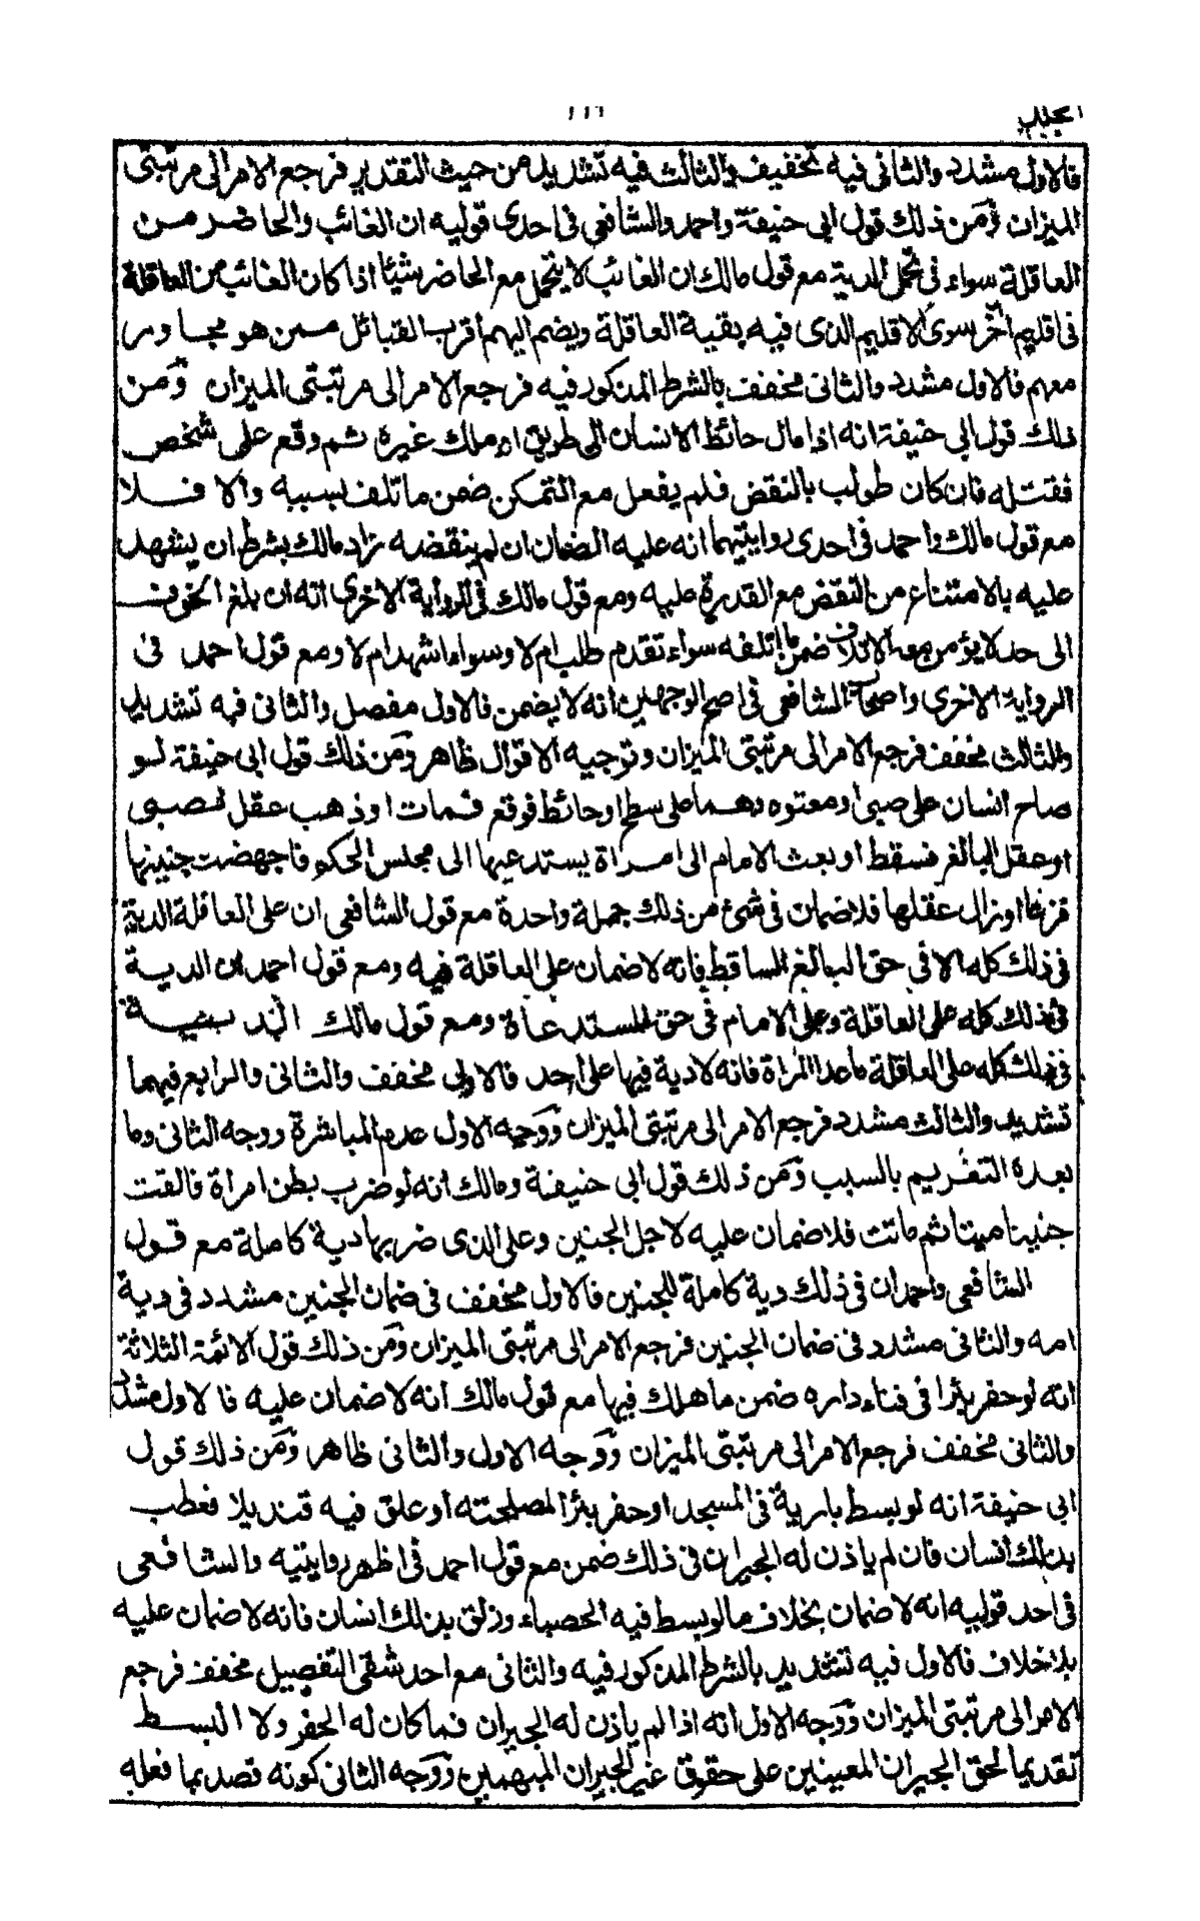 ١١٦
فالاول مشدد والثانى فيه تخفيف والثالث فيه تشديد من حيث التقدير فرجع الامر الى مرتبتى
الميزان ومن ذلك قول ابى حنيفة واحمد والشافعى فى احدى قوليه ان الغائب والحاضر من
العاقلة سواء فى تحمل الدية مع قول مالك ان الغائب لا يتحمل مع الحاضر شيئا اذا كان الغائب من العاقلة
فى اقليم آخر سوى الاقليم الذى فيه بقية العاقلة ويضم اليهم اقرب القبائل ممن هو مجاور
معهم فالاول مشدد والثانى مخفف بالشرط المذكور فيه فرجع الامر الى مرتبتى الميزان ومن
ذلك قول ابى حنيفة انه اذا مال حائط الانسان الى طريق او ملك غيره ثم وقع على شخص
فقتله فان كان طولب بالنقض فلم يفعل مع التمكن ضمن ما تلف بسببه والا فلا
مع قول مالك واحمد فى احدى روايتيهما انه عليه الضمان ان لم ينقضه زاد مالك بشرط ان يشهد
عليه بالامتناع من النقض مع القدرة عليه ومع قول مالك فى الرواية الاخرى انه ان بلغ الخوف
الى حد لا يؤمن معه الاتلاف ضمن ما اتلفه سواء تقدم طلب ام لا وسواء اشهد ام لا ومع قول احمد فى
الرواية الاخرى واصحاب الشافعى فى اصح الوجهين انه لا يضمن فالاول مفصل والثانى فيه تشديد
والثالث مخفف فرجع الامر الى مرتبتى الميزان وتوجيه الاقوال ظاهر ومن ذلك قول ابى حنيفة لو
صاح انسان على صبى او معتوه وهما على سطح او حائط فوقع فمات او ذهب عقل الصبى
او عقل البالغ فسقط او بعث الامام الى امراة يستدعيها الى مجلس الحكم فاجهضت جنينها
فزعا او زال عقلها فلا ضمان فى شئ من ذلك جملة واحدة مع قول الشافعى ان على العاقلة الدية
فى ذلك كله الا فى حق البالغ الساقط فانه لا ضمان على العاقلة فيه ومع قول احمد ان الدية
فى ذلك كله على العاقلة وعلى الامام فى حق المستدعاة ومع قول مالك الدية
فى ذلك كله على العاقلة ما عدا المراة فانه لا دية فيها على احد فالاول مخفف والثانى والرابع فيهما
تشديد والثالث مشدد فرجع الامر الى مرتبتى الميزان ووجه الاول عدم المباشرة ووجه الثانى وما
بعده التغريم بالسبب ومن ذلك قول ابى حنيفة ومالك انه لو ضرب بطن امراة فالقت
جنينا ميتا ثم ماتت فلا ضمان عليه لاجل الجنين وعلى الذى ضربها دية كاملة مع قول
الشافعى واحمد ان فى ذلك دية كاملة للجنين فالاول مخفف فى ضمان الجنين مشدد فى دية
امه والثانى مشدد فى ضمان الجنين فرجع الامر الى مرتبتى الميزان ومن ذلك قول الائمة الثلاثة
انه لو حفر بئرا فى فناء داره ضمن ما هلك فيها مع قول مالك انه لا ضمان عليه فالاول مشدد
والثانى مخفف فرجع الامر الى مرتبتى الميزان ووجه الاول والثانى ظاهر ومن ذلك قول
ابى حنيفة انه لو بسط بارية فى المسجد او حفر بئرا لمصلحته او علق فيه قنديلا فعطب
بذلك انسان فان لم ياذن له الجيران فى ذلك ضمن مع قول احمد فى اظهر روايتيه والشافعى
فى احد قوليه انه لا ضمان بخلاف ما لو بسط فيه الحصباء وزلق بذلك انسان فانه لا ضمان عليه
بلا خلاف فالاول فيه تشديد بالشرط المذكور فيه والثانى مع احد شقى التفصيل مخفف فرجع
الامر الى مرتبتى الميزان ووجه الاول انه اذا لم ياذن له الجيران فما كان له الحفر ولا البسط
تقديما لحق الجيران المعينين على حقوق غير الجيران المبهمين ووجه الثانى كونه قصد بما فعله